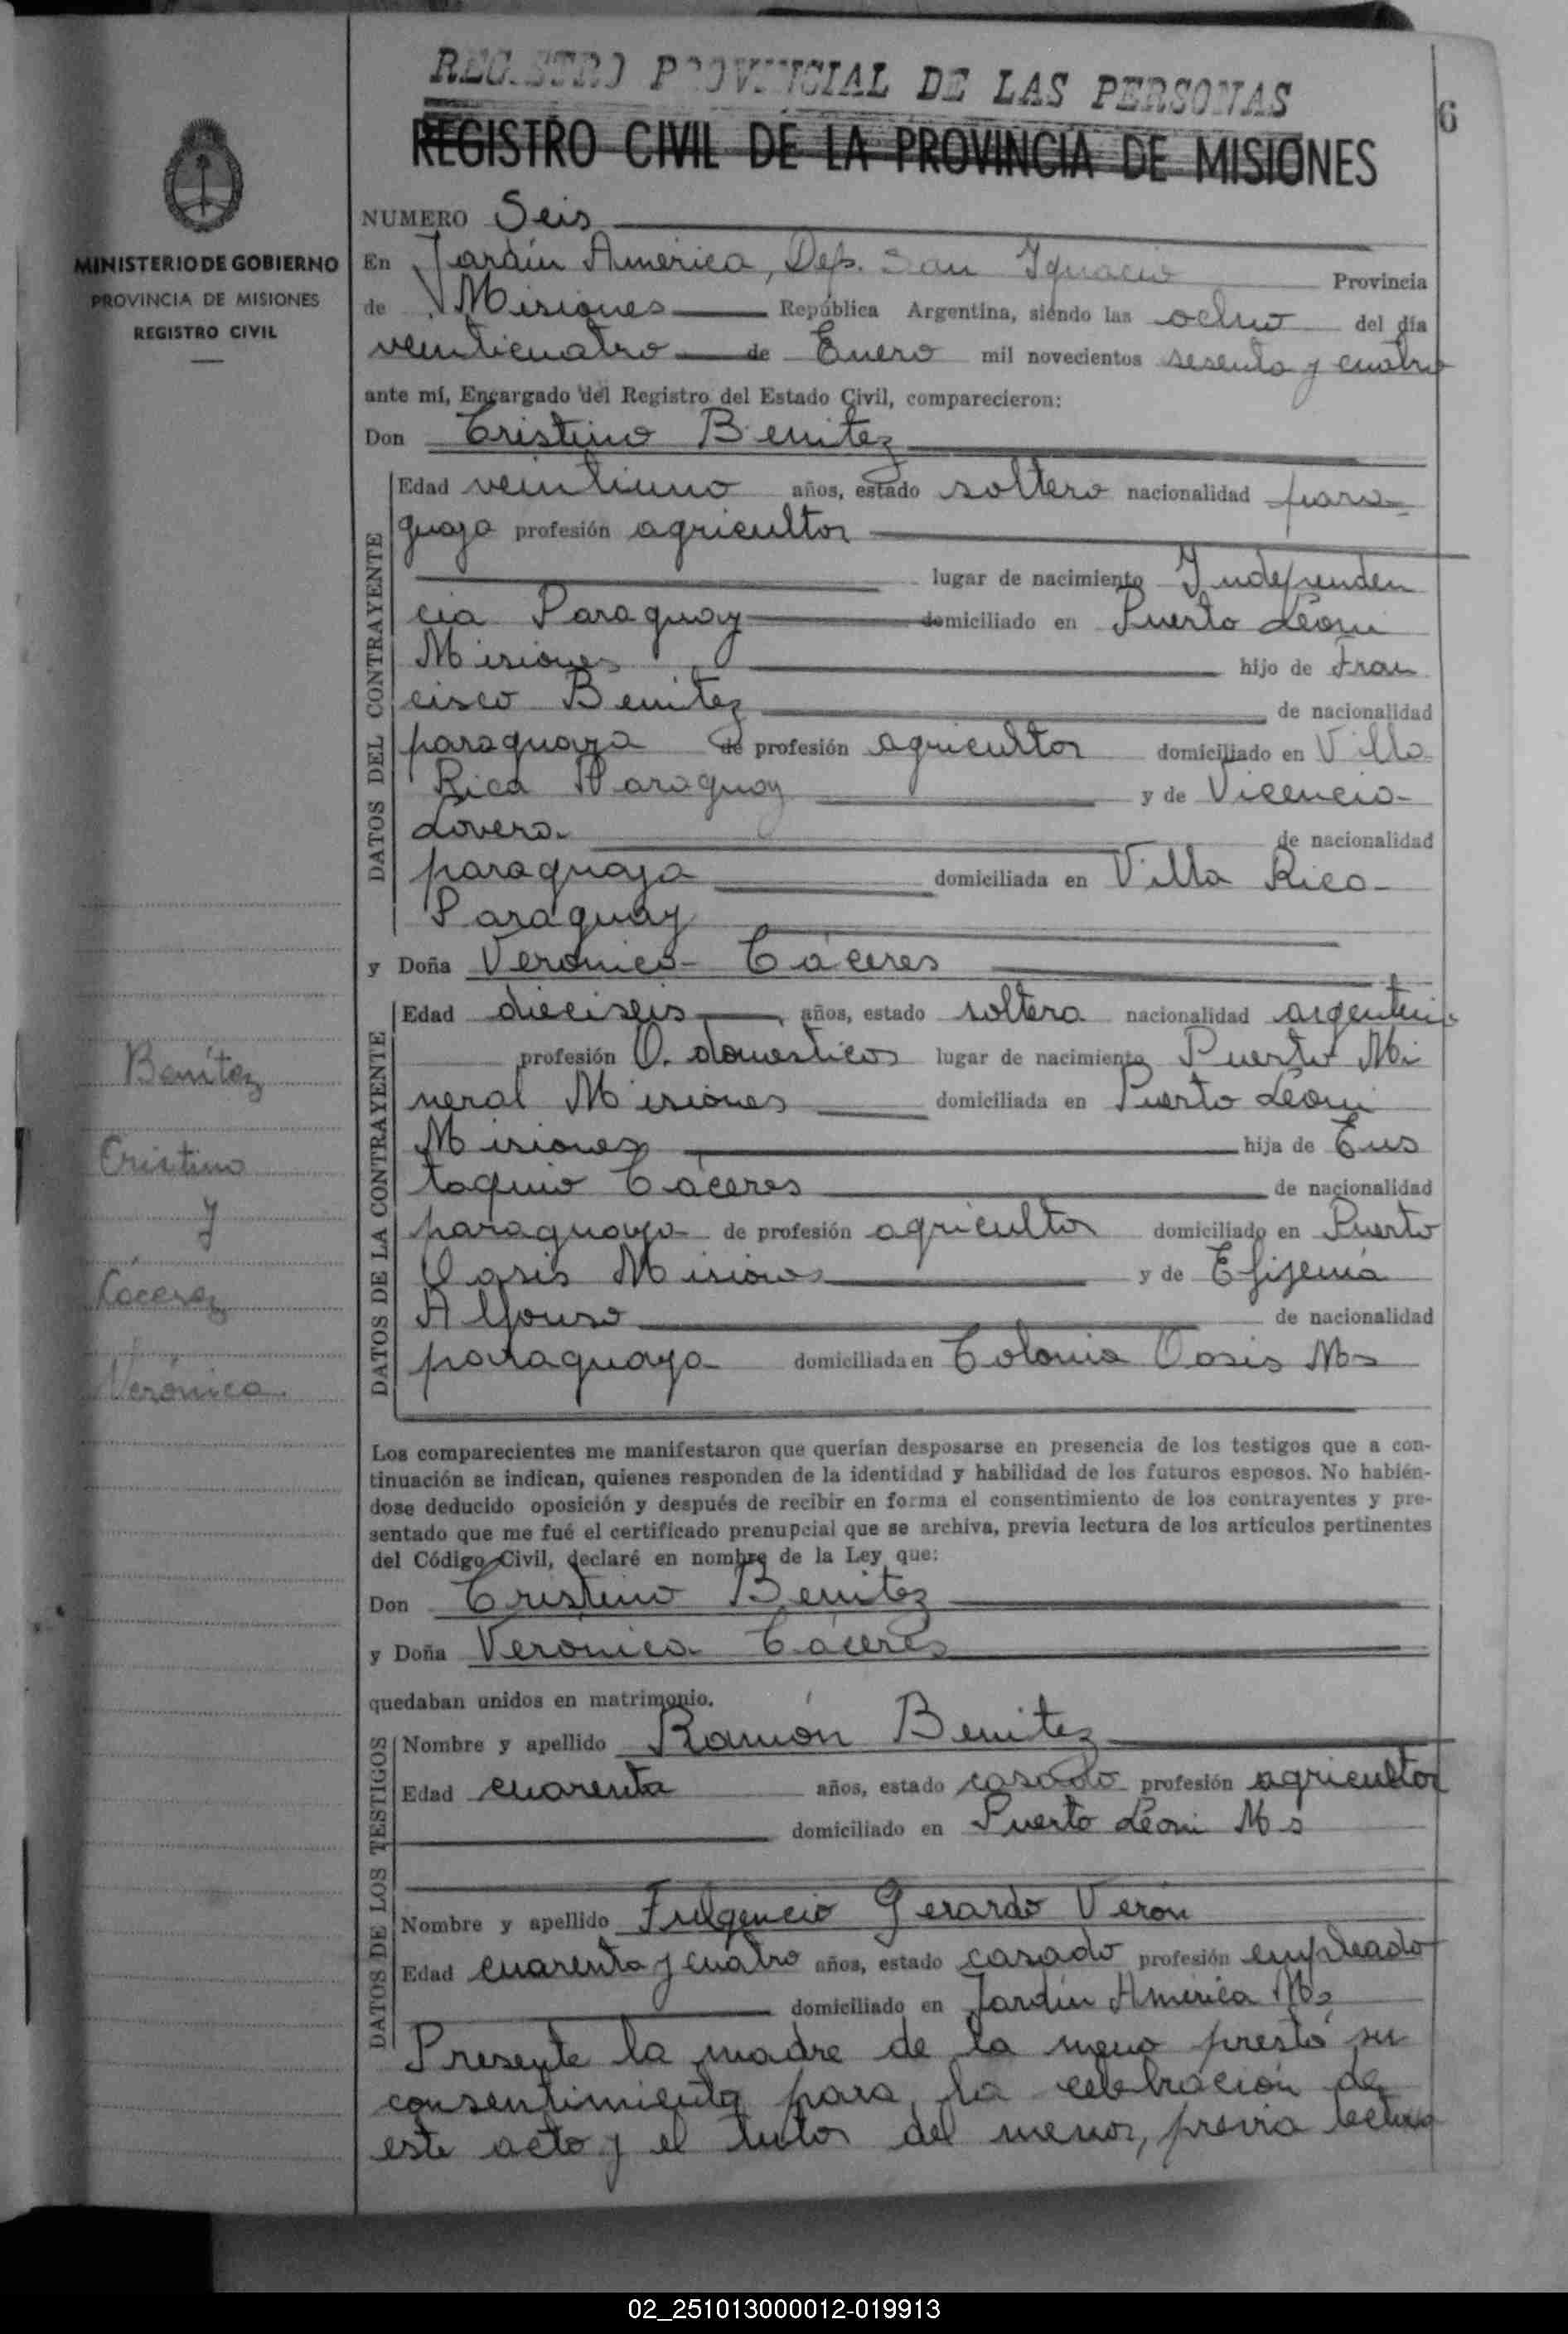 REGISTRO PROVINCIAL DE LAS PERSONAS
6
REGISTRO CIVIL DE LA PROVINCIA DE MISIONES
MINISTERIO DE GOBIERNO
PROVINCIA DE MISIONES
REGISTRO CIVIL
NUMERO Seis
En Jardín América, Dep. San Ignacio Provincia
de Misiones República Argentina, siendo las ocho del día
veinticuatro de Enero mil novecientos sesenta y cuatro
ante mí, Encargado del Registro del Estado Civil, comparecieron:
Don Cristino Benitez
DATOS DEL CONTRAYENTE
Edad veintiuno años, estado soltero nacionalidad para-
guaya profesión agricultor
lugar de nacimiento Independen
cia Paraguay domiciliado en Puerto Leoni
Misiones hijo de Fran
cisco Benitez de nacionalidad
paraguaya de profesión agricultor domiciliado en Villa
Rica Paraguay y de Vicencia
Lovera de nacionalidad
paraguaya domiciliada en Villa Rica
Paraguay
y Doña Verónica Cáceres
DATOS DE LA CONTRAYENTE
Edad dieciseis años, estado soltera nacionalidad argentina
profesión Q. domesticos lugar de nacimiento Puerto Mi
neral Misiones domiciliada en Puerto Leoni
Misiones hija de Eus
taquio Cáceres de nacionalidad
paraguaya de profesión agricultor domiciliado en Puerto
Oasis Misiones y de Efijenia
Alfonso de nacionalidad
paraguaya domiciliada en Colonia Oasis Ms
Benítez
Cristino
y
Cácerez
Verónica.
Los comparecientes me manifestaron que querían desposarse en presencia de los testigos que a con-
tinuación se indican, quienes responden de la identidad y habilidad de los futuros esposos. No habién-
dose deducido oposición y después de recibir en forma el consentimiento de los contrayentes y pre-
sentado que me fué el certificado prenupcial que se archiva, previa lectura de los artículos pertinentes
del Código Civil, declaré en nombre de la Ley que:
Don Cristino Benitez
y Doña Verónica Cáceres
quedaban unidos en matrimonio.
DATOS DE LOS TESTIGOS
Nombre y apellido Ramón Benitez
Edad cuarenta años, estado casado profesión agricultor
domiciliado en Puerto Leoni Ms
Nombre y apellido Fulgencio Gerardo Verón
Edad cuarenta y cuatro años, estado casado profesión empleado
domiciliado en Jardín América Ms
Presente la madre de la prestó su
consentimiento para la celebración de
este acto y el tutor del menor, previa lectura
02_251013000012-019913